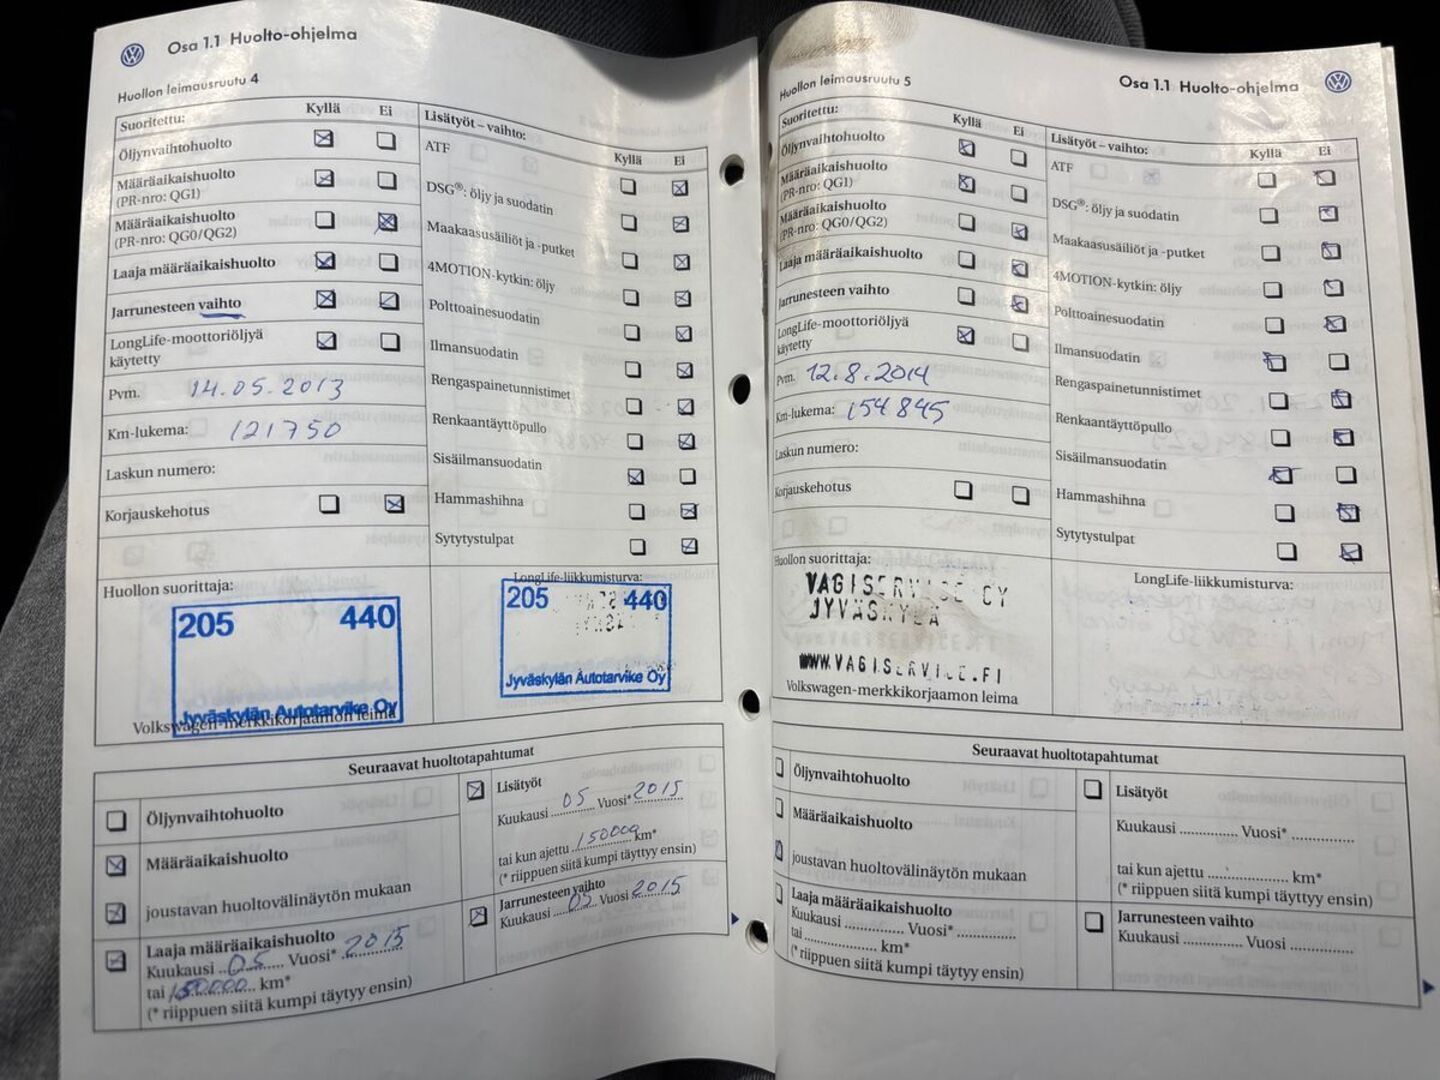 Osa 1.1 Huolto-ohjelma
Huollon leimausruutu 4
Suoritettu: Kyllä Ei
Öljynvaihtohuolto
Määräaikaishuolto
(PR-nro: QG1)
Määräaikaishuolto
(PR-nro: QG0/QG2)
Laaja määräaikaishuolto
Jarrunesteen vaihto
LongLife-moottoriöljyä
käytetty
Pvm. 14.05.2013
Km-lukema: 121750
Laskun numero:
Korjauskehotus
Lisätyöt – vaihto: Kyllä Ei
ATF
DSG®: öljy ja suodatin
Maakaasusäiliöt ja -putket
4MOTION-kytkin: öljy
Polttoainesuodatin
Ilmansuodatin
Rengaspainetunnistimet
Renkaantäyttöpullo
Sisäilmansuodatin
Hammashihna
Sytytystulpat
Huollon suorittaja:
205 440
Jyväskylän Autotarvike Oy
Volkswagen-merkkikorjaamon leima
LongLife-liikkumisturva:
205 440
Jyväskylän Autotarvike Oy
Seuraavat huoltotapahtumat
Öljynvaihtohuolto
Määräaikaishuolto
joustavan huoltovälinäytön mukaan
Laaja määräaikaishuolto
Kuukausi 05 Vuosi* 2015
tai 150000 km*
(* riippuen siitä kumpi täytyy ensin)
Lisätyöt
Kuukausi 05 Vuosi* 2015
tai kun ajettu 150000 km*
(* riippuen siitä kumpi täytyy ensin)
Jarrunesteen vaihto
Kuukausi 05 Vuosi 2015
Osa 1.1 Huolto-ohjelma
Huollon leimausruutu 5
Suoritettu: Kyllä Ei
Öljynvaihtohuolto
Määräaikaishuolto
(PR-nro: QG1)
Määräaikaishuolto
(PR-nro: QG0/QG2)
Laaja määräaikaishuolto
Jarrunesteen vaihto
LongLife-moottoriöljyä
käytetty
Pvm. 12.8.2014
Km-lukema: 154845
Laskun numero:
Korjauskehotus
Lisätyöt – vaihto: Kyllä Ei
ATF
DSG®: öljy ja suodatin
Maakaasusäiliöt ja -putket
4MOTION-kytkin: öljy
Polttoainesuodatin
Ilmansuodatin
Rengaspainetunnistimet
Renkaantäyttöpullo
Sisäilmansuodatin
Hammashihna
Sytytystulpat
Huollon suorittaja:
VAGISERVICE OY
JYVÄSKYLÄ
WWW.VAGISERVICE.FI
Volkswagen-merkkikorjaamon leima
LongLife-liikkumisturva:
Seuraavat huoltotapahtumat
Öljynvaihtohuolto
Määräaikaishuolto
joustavan huoltovälinäytön mukaan
Laaja määräaikaishuolto
Kuukausi ............... Vuosi* ...............
tai .................. km*
(* riippuen siitä kumpi täytyy ensin)
Lisätyöt
Kuukausi ............... Vuosi* ...............
tai kun ajettu .................... km*
(* riippuen siitä kumpi täytyy ensin)
Jarrunesteen vaihto
Kuukausi ............... Vuosi ...............